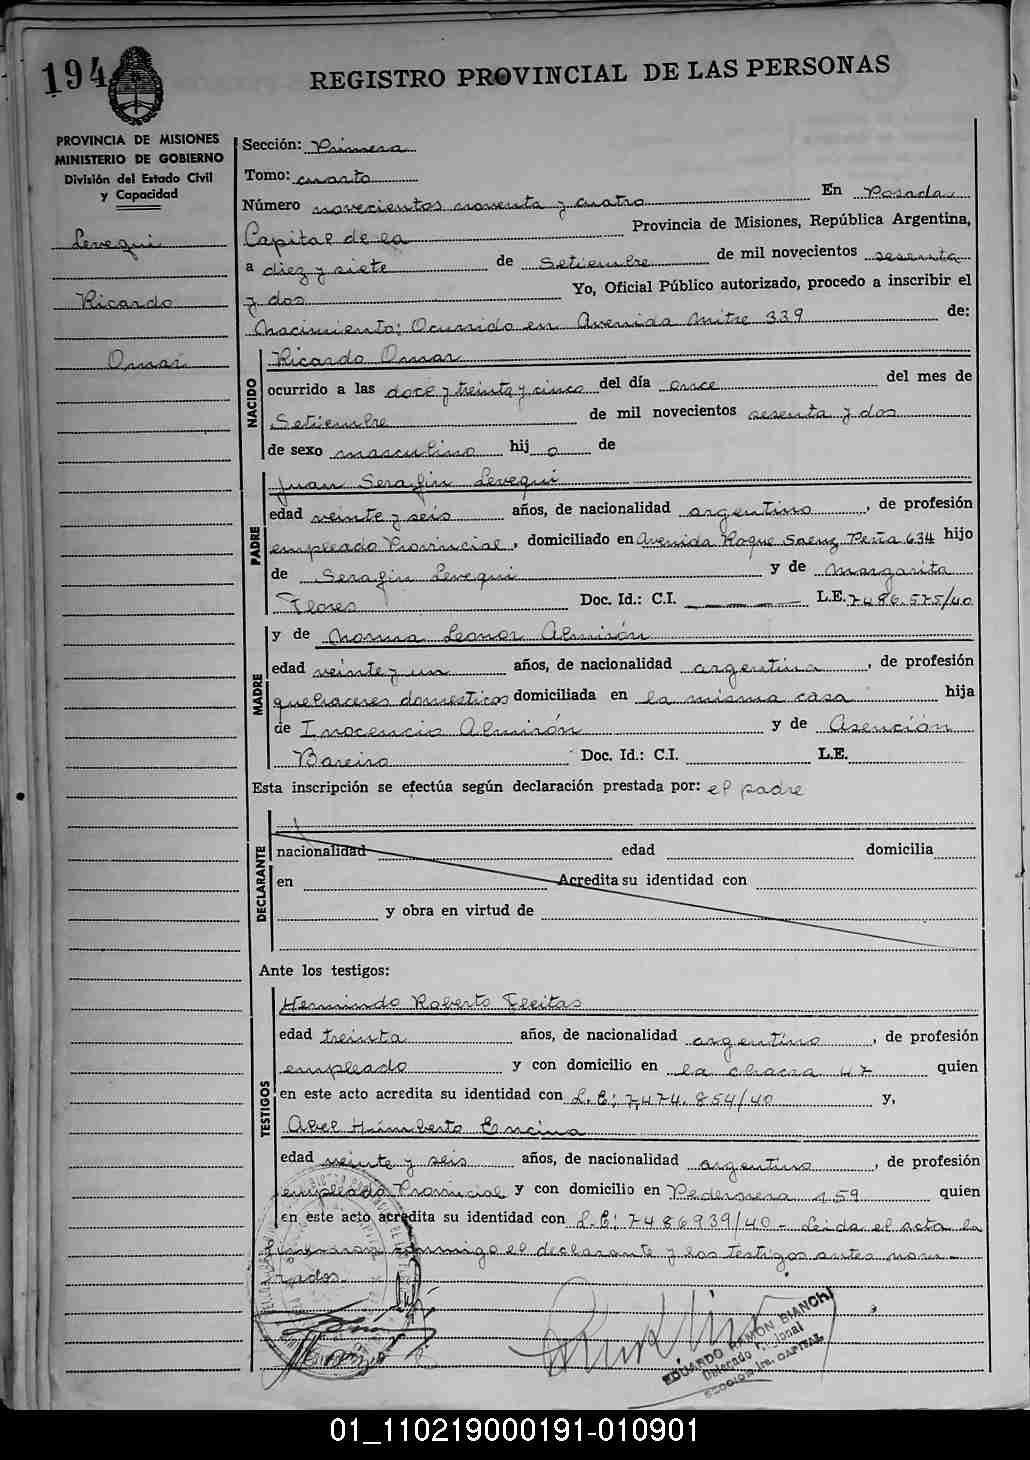 194
REGISTRO PROVINCIAL DE LAS PERSONAS
PROVINCIA DE MISIONES
MINISTERIO DE GOBIERNO
División del Estado Civil
y Capacidad
Levequi
Ricardo
Omar
Sección: Primera
Tomo: cuarto
Número novecientos noventa y cuatro En Posadas
Capital de la Provincia de Misiones, República Argentina,
a diez y siete de Setiembre de mil novecientos sesenta
y dos Yo, Oficial Público autorizado, procedo a inscribir el
Nacimiento: Ocurrido en Avenida Mitre 339 de:
NACIDO
Ricardo Omar
ocurrido a las doce y treinta y cinco del día once del mes de
Setiembre de mil novecientos sesenta y dos
de sexo masculino hij o de
PADRE
Juan Serafin Levequi
edad veinte y seis años, de nacionalidad argentino, de profesión
empleado Provincial, domiciliado en Avenida Roque Saenz Peña 634 hijo
de Serafin Levequi y de Margarita
Flores Doc. Id.: C.I. L.E. 7486.575/40
MADRE
y de Norma Leonor Almirón
edad veinte y un años, de nacionalidad argentina, de profesión
quehaceres domesticos domiciliada en la misma casa hija
de Inocencio Almirón y de Asención
Bareiro Doc. Id.: C.I. L.E.
Esta inscripción se efectúa según declaración prestada por: el padre
DECLARANTE
nacionalidad edad domicilia
en Acredita su identidad con
y obra en virtud de
Ante los testigos:
TESTIGOS
Hermindo Roberto Fleitas
edad treinta años, de nacionalidad argentino, de profesión
empleado y con domicilio en la chacra 47 quien
en este acto acredita su identidad con L.E: 7,474.854/40 y,
Abel Humberto Encina
edad veinte y seis años, de nacionalidad argentino, de profesión
empleado Provincial y con domicilio en Pedernera 159 quien
en este acto acredita su identidad con L.E: 7486939/40 - Leida el acta la
firmaron conmigo el declarante y los testigos antes nom-
rados.
EDUARDO RAMON BIANCHI
Delegado
SECCION 1ra. CAPITAL
01_110219000191-010901